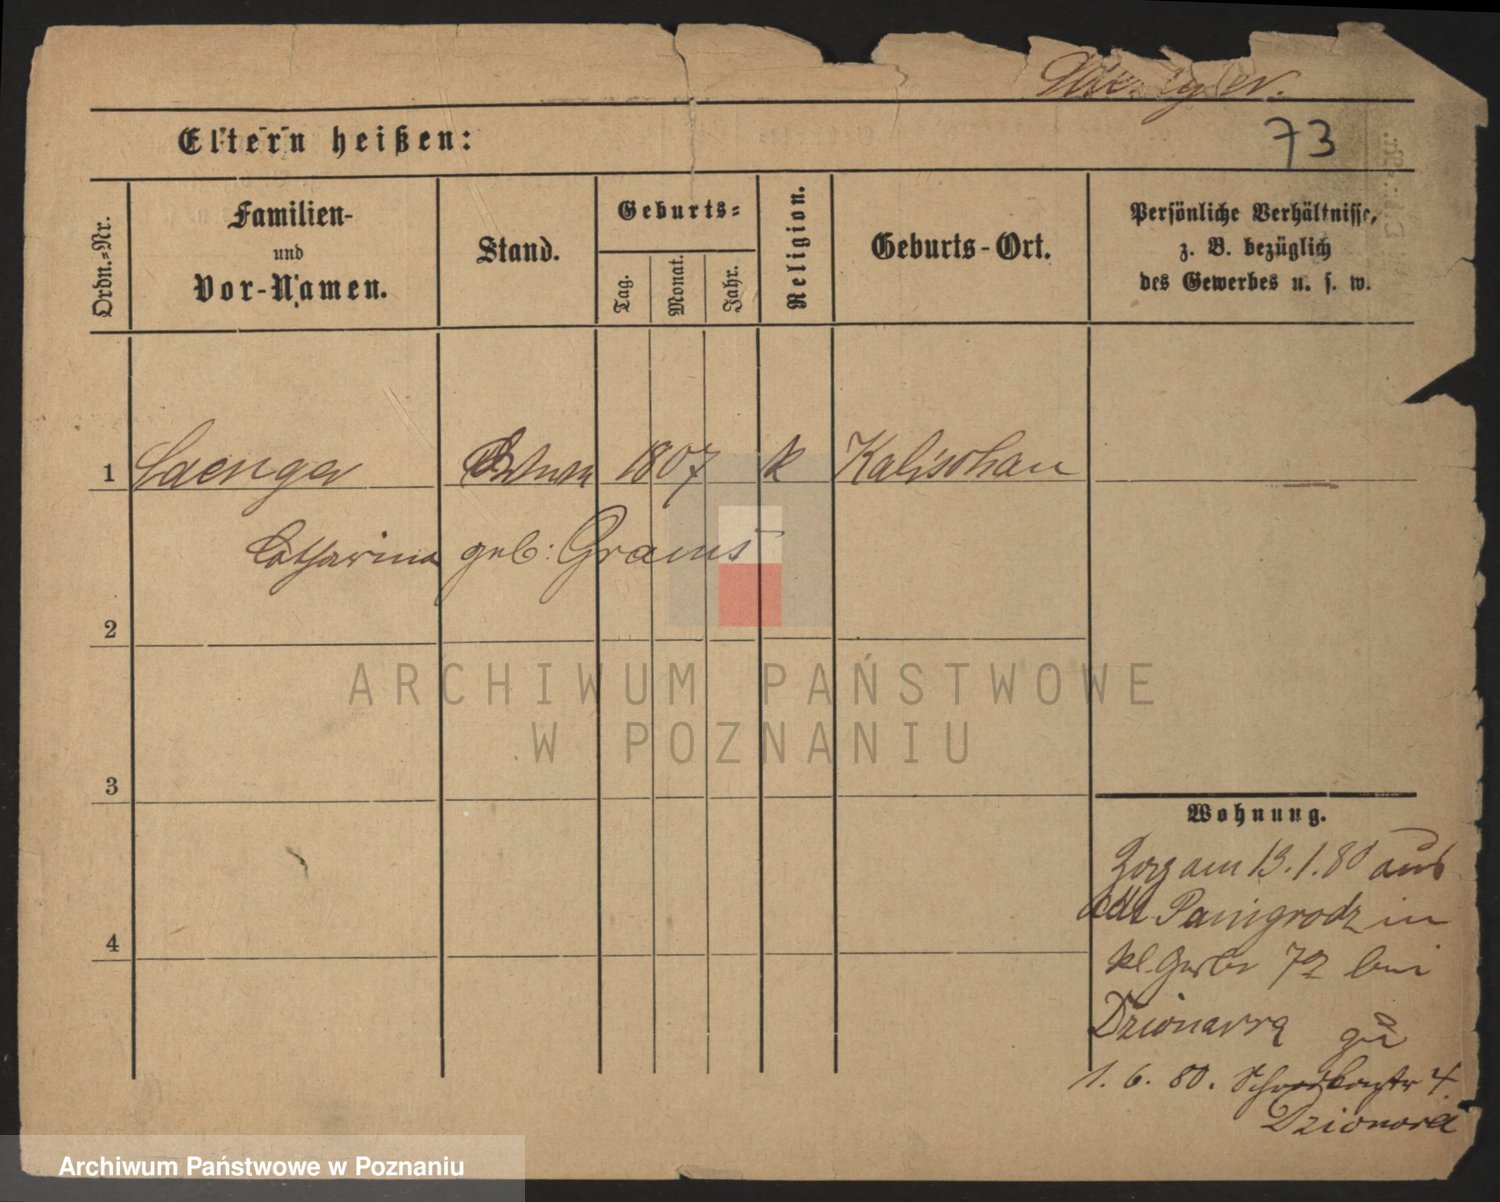 73
Eltern heißen:
Ordn.-Nr.
Familien-
und
Vor-Namen.
Stand.
Geburts-
Tag.
Monat.
Jahr.
Religion.
Geburts-Ort.
Persönliche Verhältnisse,
z. B. bezüglich
des Gewerbes u. s. w.
1 Laenger 1807 k Kalischan
Catharina geb: Grams
2
ARCHIWUM PAŃSTWOWE
W POZNANIU
3
Wohnung.
Zog am 13.1.80 aus
Panigrodz in
kl. Gerber 7 bei
Dzionara zu
4
1. 6. 80. 4.
Dzionara
Archiwum Państwowe w Poznaniu